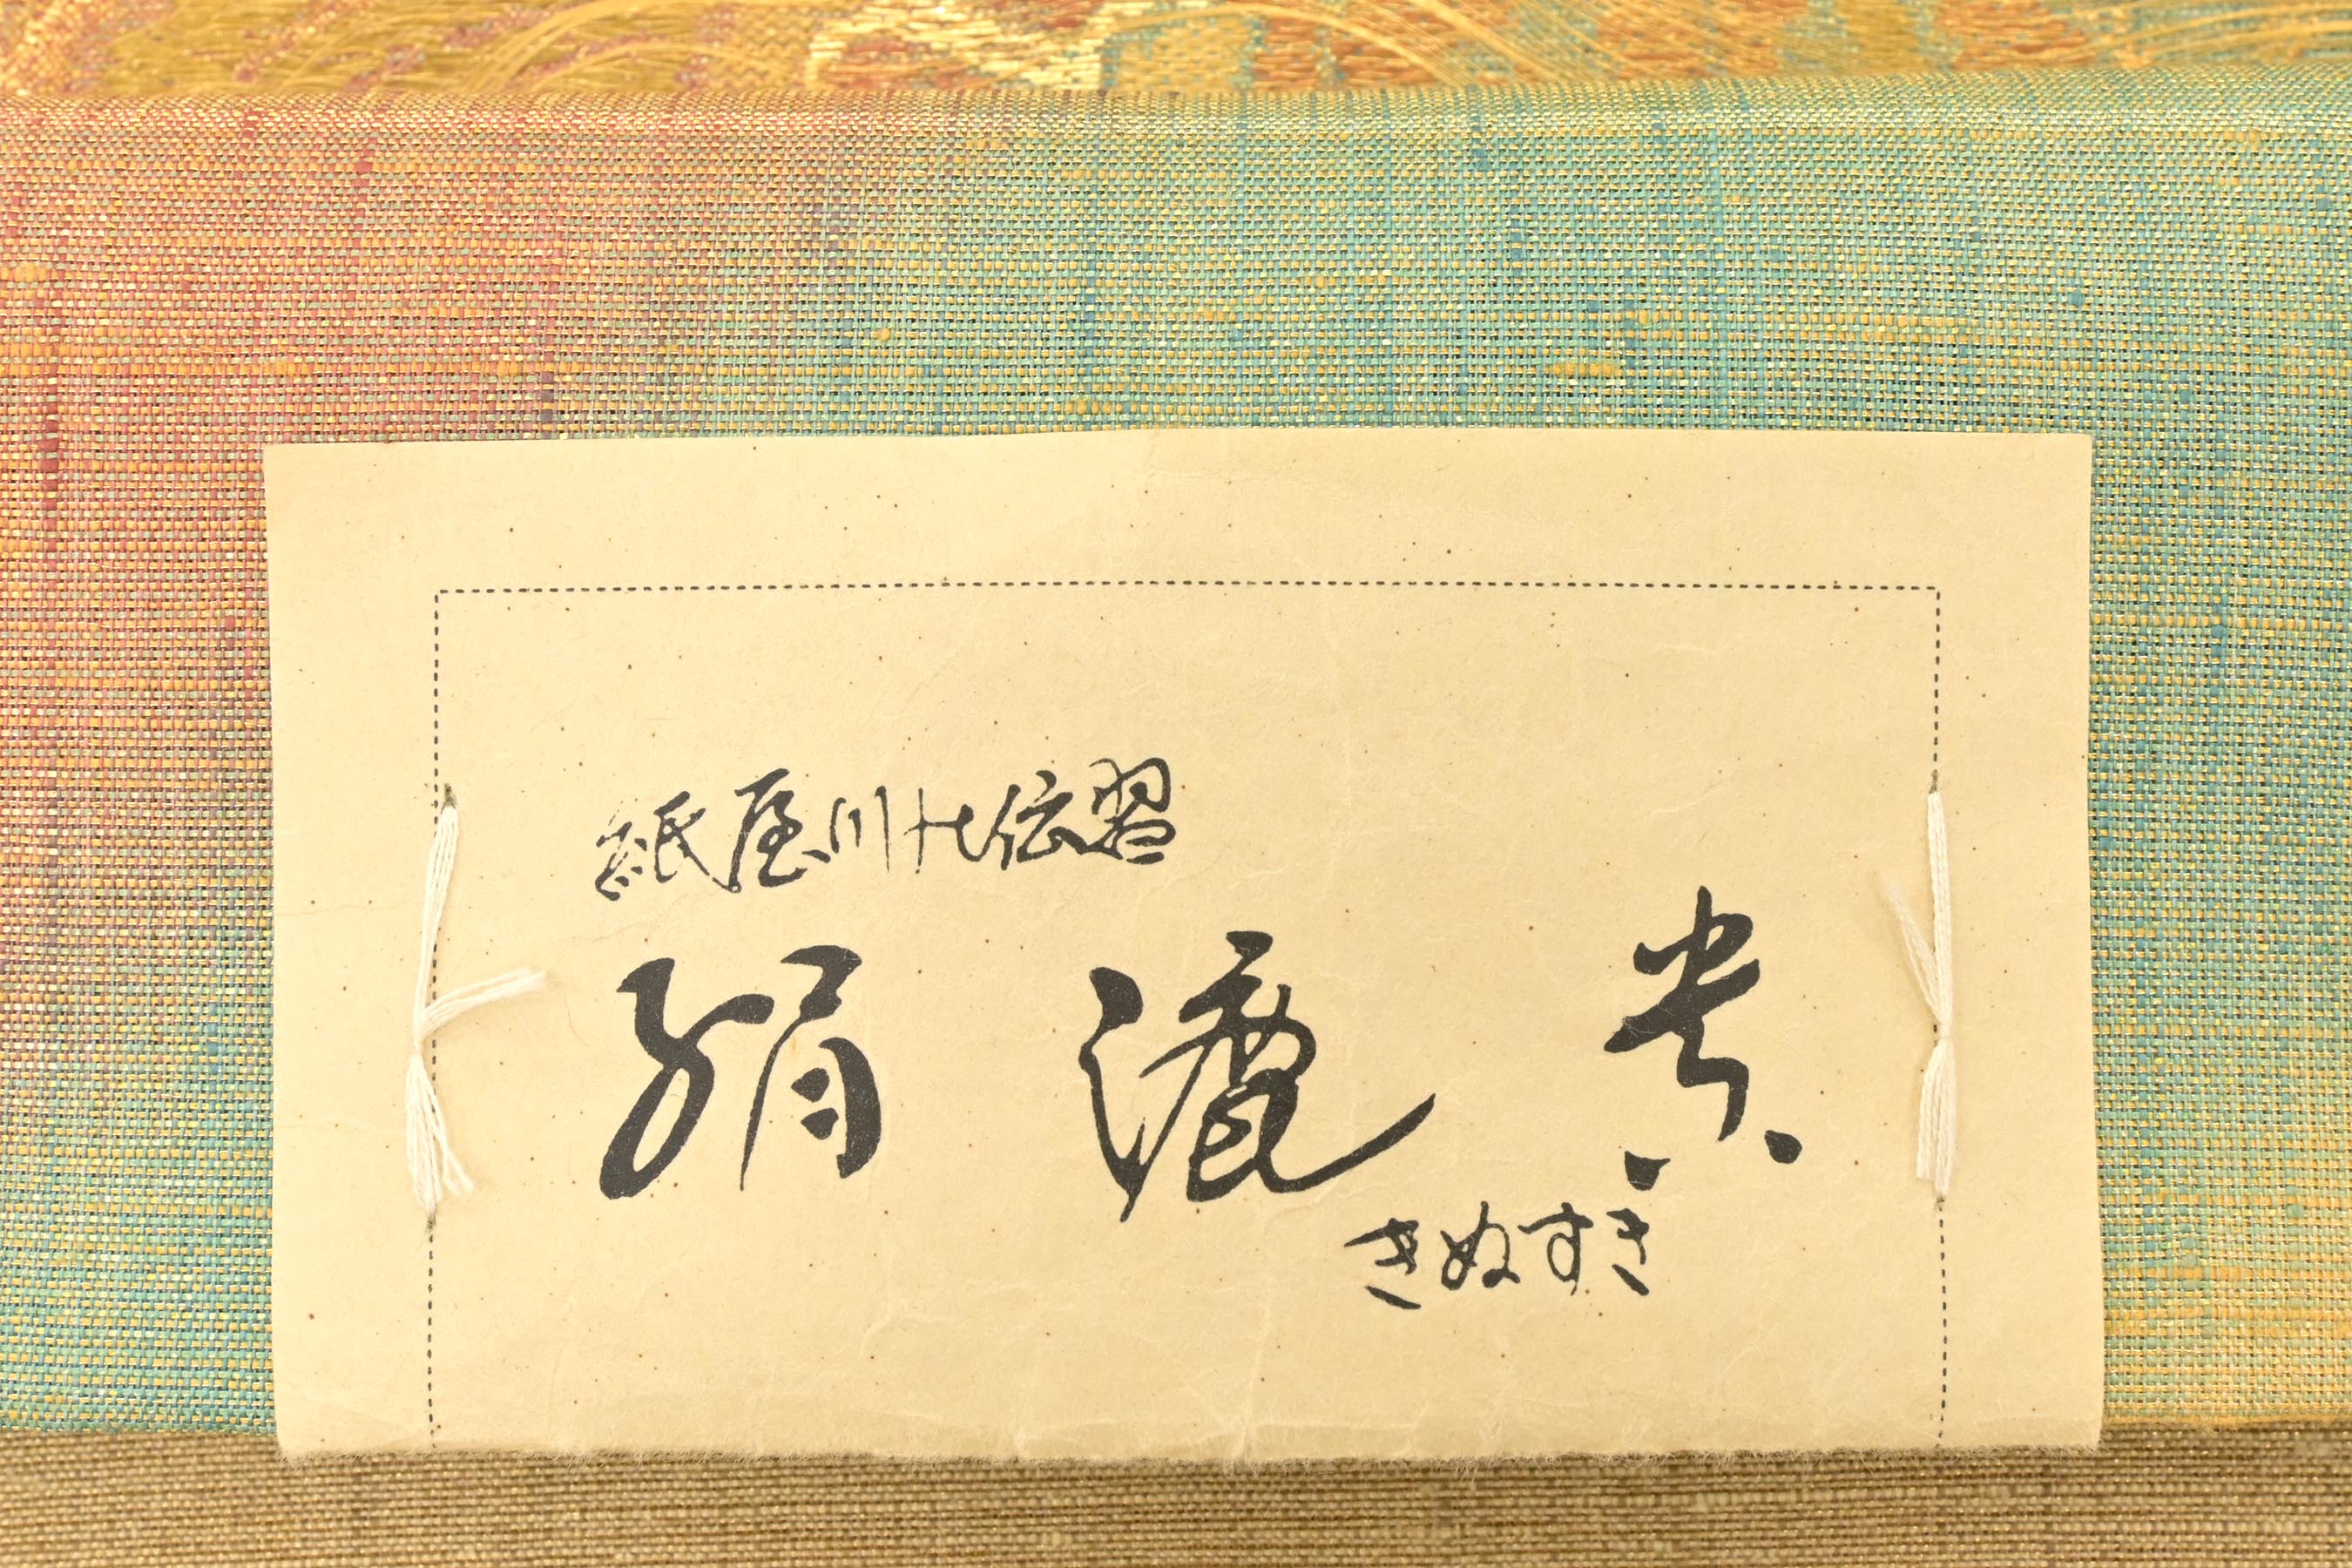 紙屋川伝習
絹漉貴
きぬすき